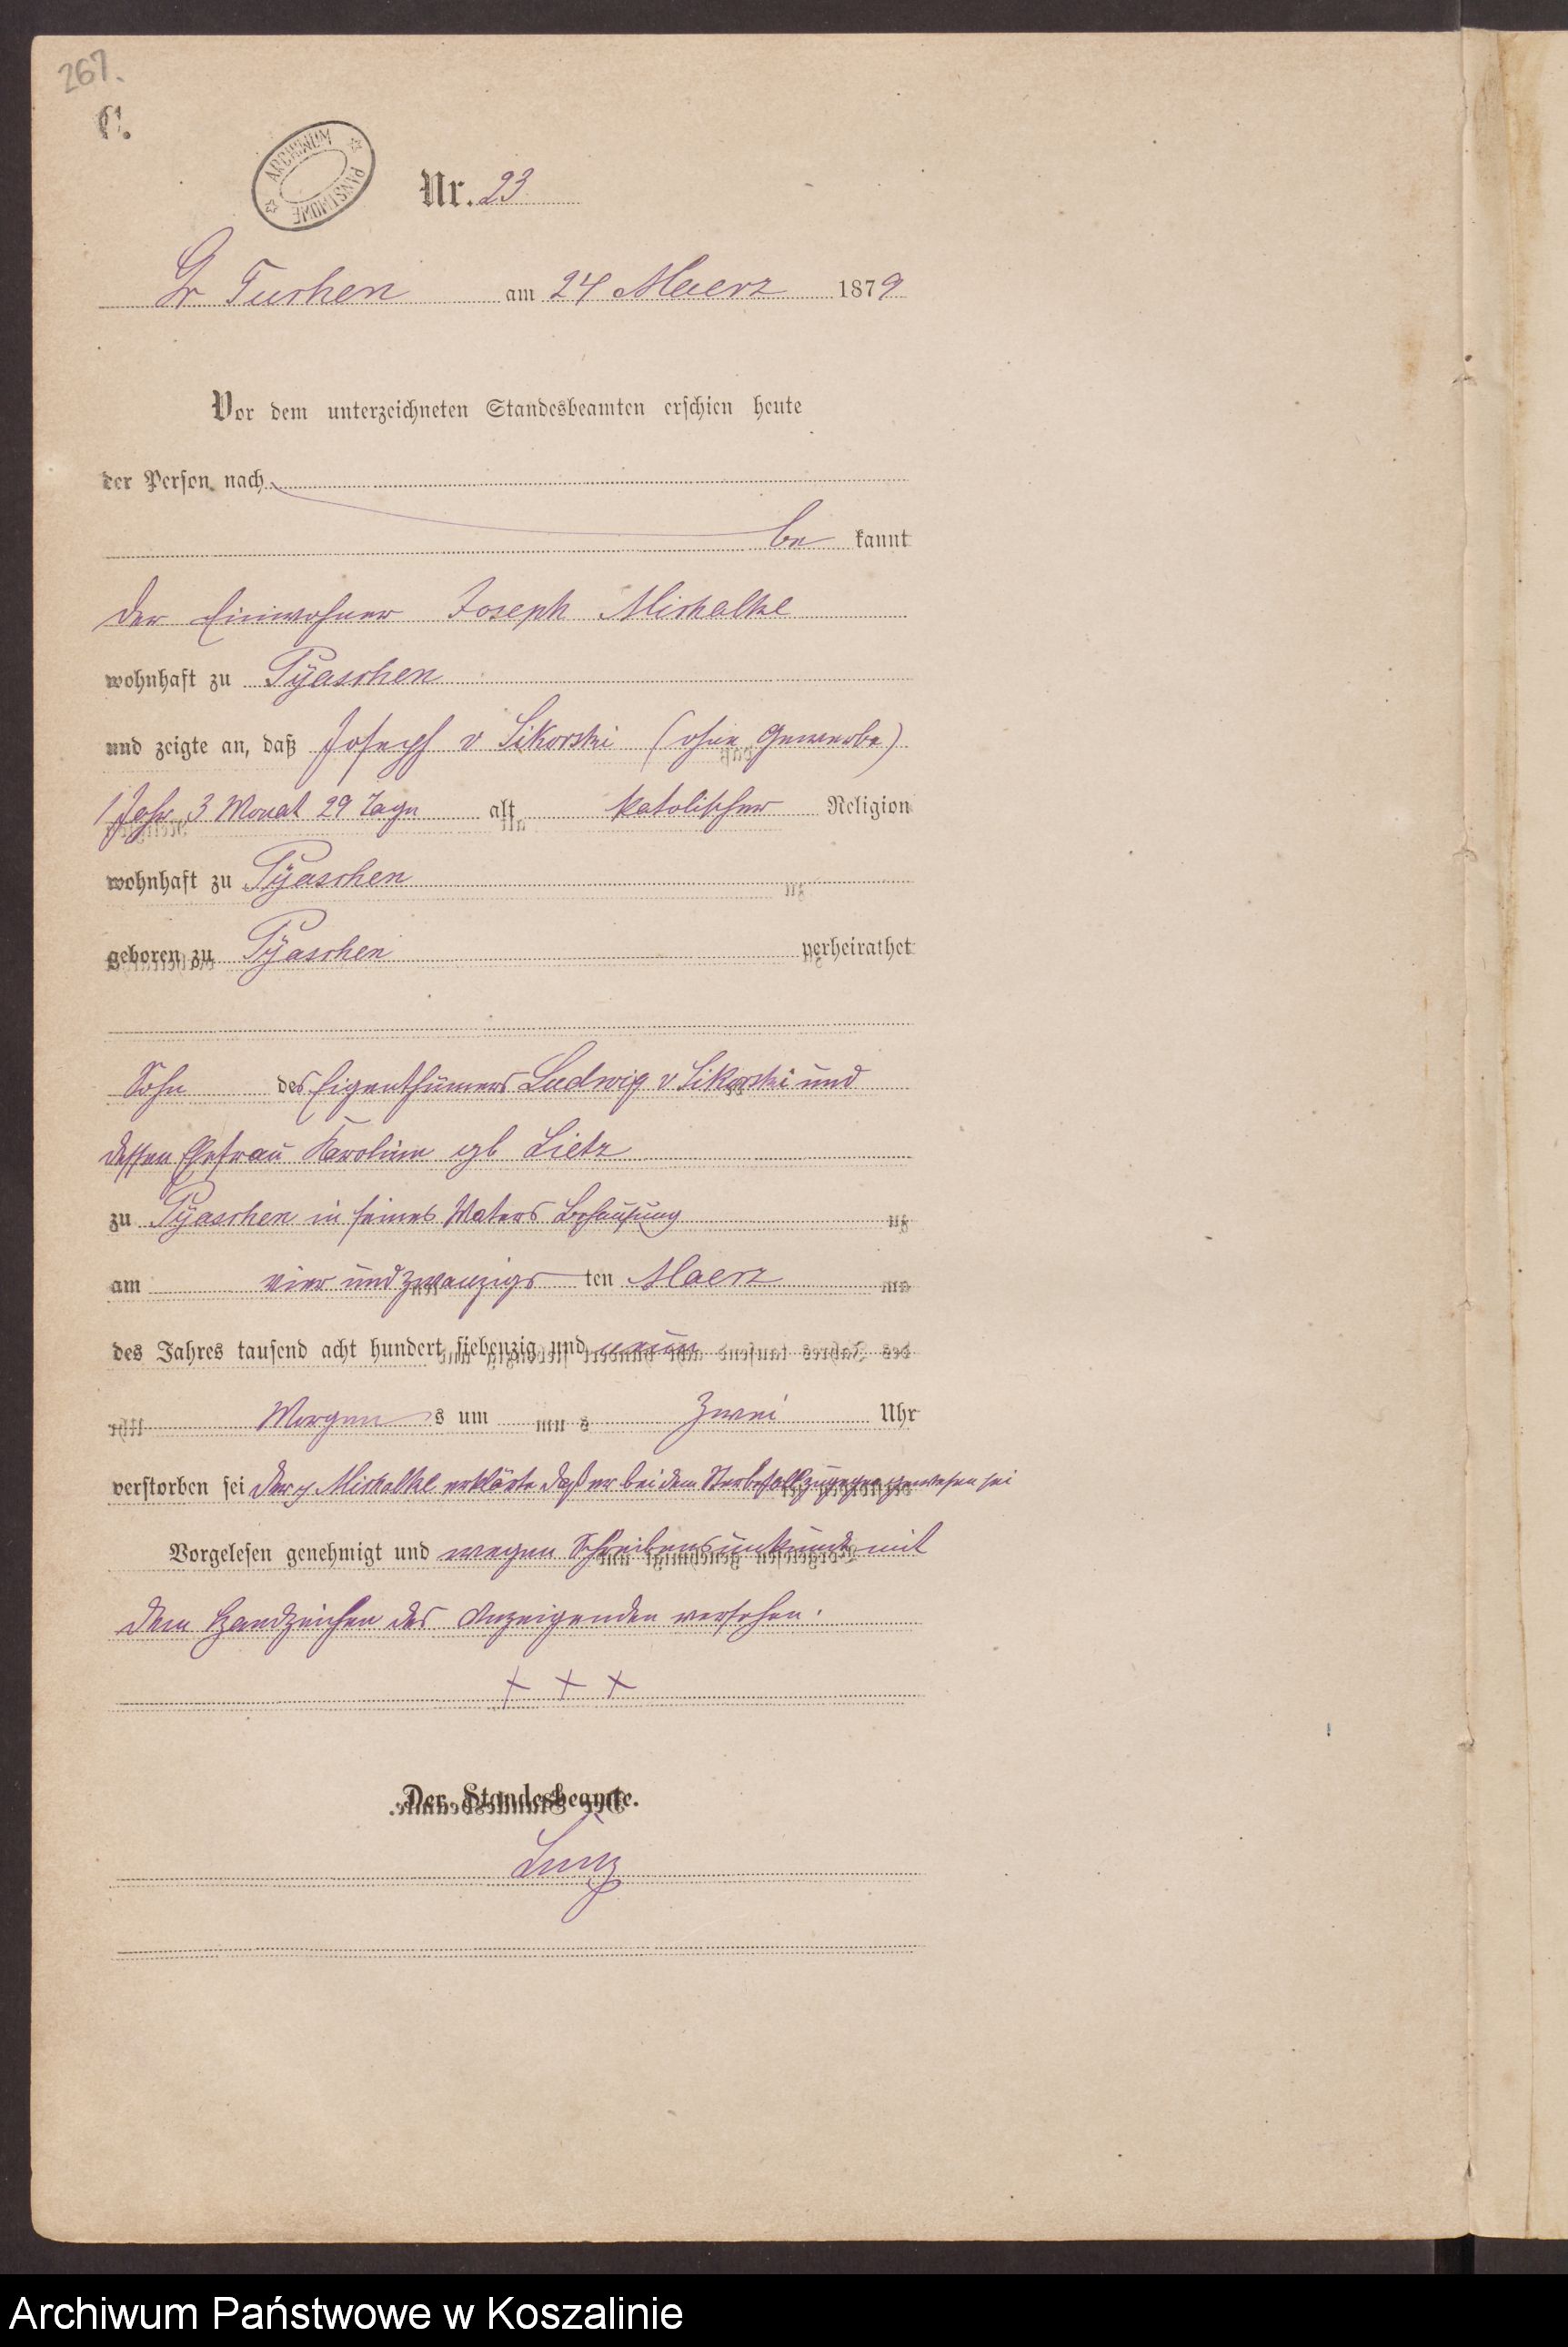 267.
C.
ARCHIWUM PAŃSTWOWE
Nr. 23
Gr Tuchen am 24 Maerz 1879
Vor dem unterzeichneten Standesbeamten erschien heute
der Person nach
be kannt
der Einwohner Joseph Mischalke
wohnhaft zu Pyaschen
und zeigte an, daß Joseph v Sikorski (ohne Gewerbe)
1 Jahr 3 Monat 29 Tage alt katolischer Religion
wohnhaft zu Pyaschen
geboren zu Pyaschen verheirathet
Sohn des Eigenthümers Ludwig v Sikorski und
dessen Ehefrau Karoline gb Lietz
zu Pyaschen in seines Vaters Behausung
am vier und zwanzigs ten Maerz
des Jahres tausend acht hundert siebenzig und neun
Morgen s um zwei Uhr
verstorben sei der Mischalke erklärte daß er bei dem Sterbefall zugegen gewesen sei
Vorgelesen genehmigt und wegen Schreibensunkunde mit
dem Handzeichen des Anzeigenden versehen.
+ + +
Der Standesbeamte.
Archiwum Państwowe w Koszalinie